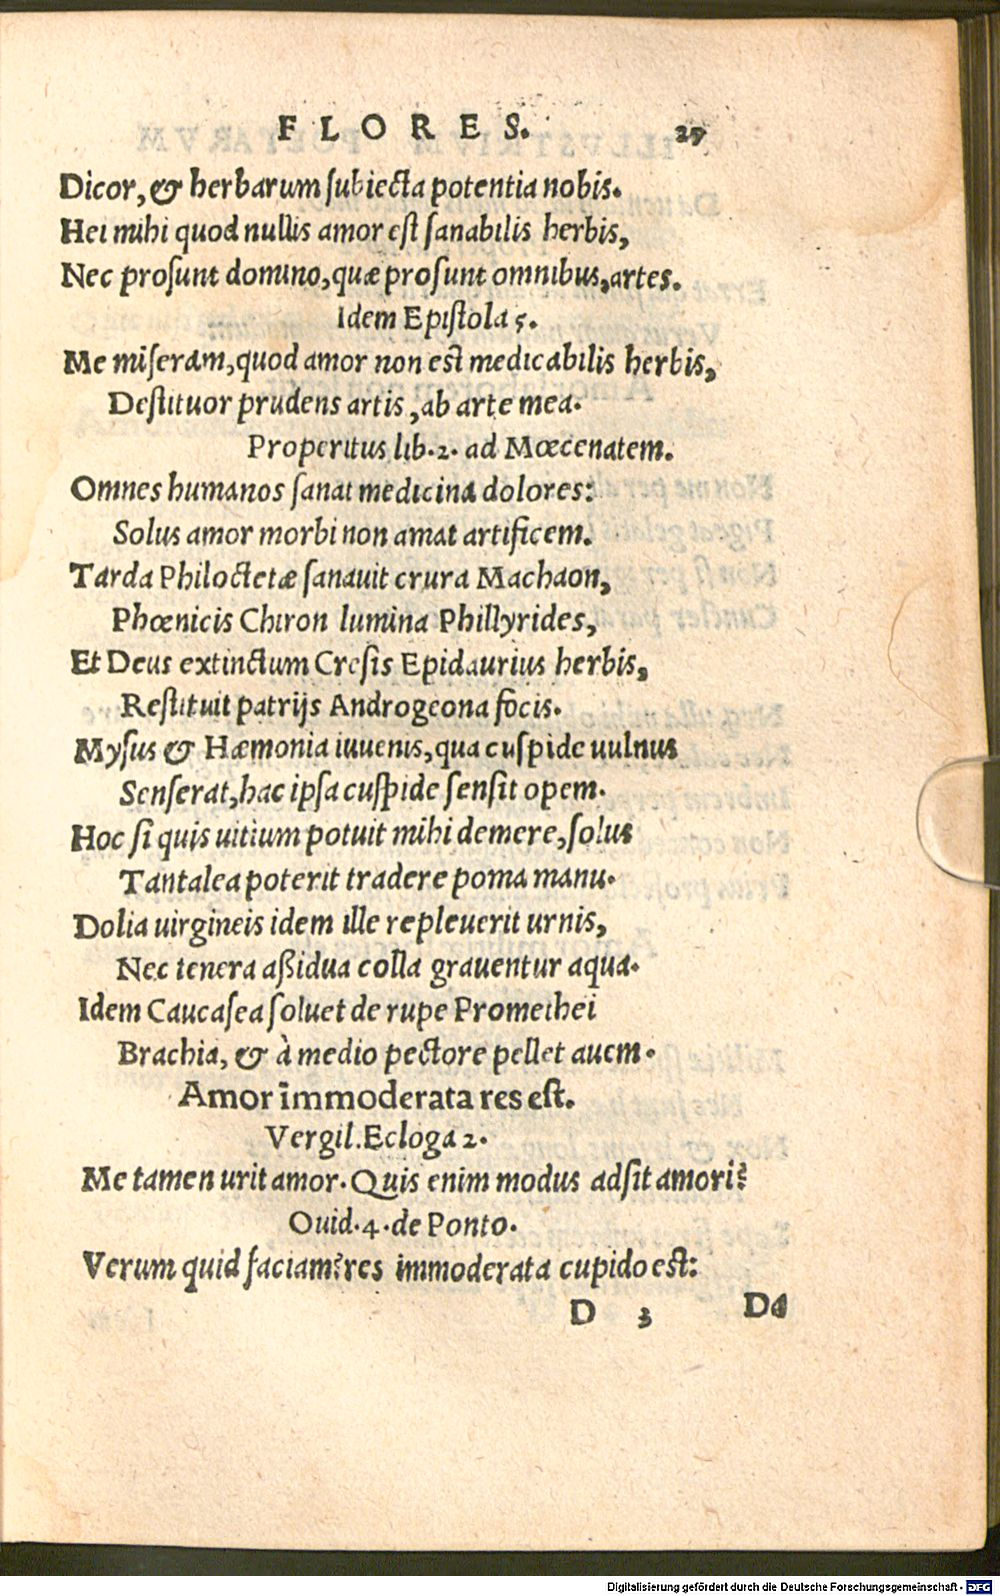 FLORES. 27
Dicor, & herbarum subiecta potentia nobis.
Hei mihi quod nullis amor est sanabilis herbis,
Nec prosunt domino, quæ prosunt omnibus, artes.
Idem Epistola 5.
Me miseram, quod amor non est medicabilis herbis,
Destituor prudens artis, ab arte mea.
Propertius lib. 2. ad Mœcenatem.
Omnes humanos sanat medicina dolores:
Solus amor morbi non amat artificem.
Tarda Philoctetæ sanauit crura Machaon,
Phœnicis Chiron lumina Phillyrides,
Et Deus extinctum Cresis Epidaurius herbis,
Restituit patrijs Androgeona focis.
Mysus & Hæmonia iuuenis, qua cuspide uulnus
Senserat, hac ipsa cuspide sensit opem.
Hoc si quis uitium potuit mihi demere, solus
Tantalea poterit tradere poma manu.
Dolia uirgineis idem ille repleuerit urnis,
Nec tenera aßidua colla grauentur aqua.
Idem Caucasea soluet de rupe Promethei
Brachia, & à medio pectore pellet auem.
Amor īmmoderata res est.
Vergil. Ecloga 2.
Me tamen urit amor. Quis enim modus adsit amori?
Ouid. 4. de Ponto.
Verum quid faciam? res immoderata cupido est:
D 3 Da
Digitalisierung gefördert durch die Deutsche Forschungsgemeinschaft - DFG